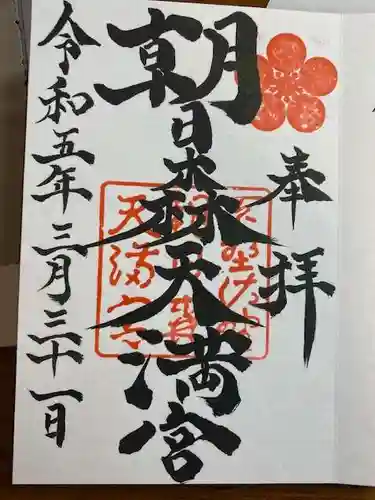 奉拝
朝日森天満宮
令和五年三月三十一日